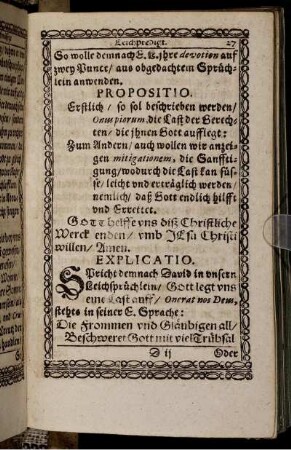 Leichpredigt. 27
So wolle demnach E. L. jhre devotion auf
zwey Punct/ aus obgedachtem Sprüch-
lein anwenden.
PROPOSITIO.
Erstlich/ so sol beschrieben werden/
Onus piorum, die Last der Gerech-
ten/ die jhnen Gott aufflegt:
Zum Andern/ auch wollen wir anzei-
gen mitigationem, die Sanffti-
gung/ wodurch die Last kan süs-
se/ leicht vnd erträglich werden/
nemlich/ daß Gott endlich hilfft
vnd Errettet.
GOTT helffe vns diß Christliche
Werck enden/ vmb JEsu Christi
willen/ Amen.
EXPLICATIO.
Spricht demnach David in vnserm
Leichsprüchlein/ Gott legt vns
eine Last auff/ Onerat nos Deus,
stehts in seiner E. Sprache:
Die Frommen vnd Gläubigen all/
Beschweret Gott mit viel Trübsal
D ij Oder